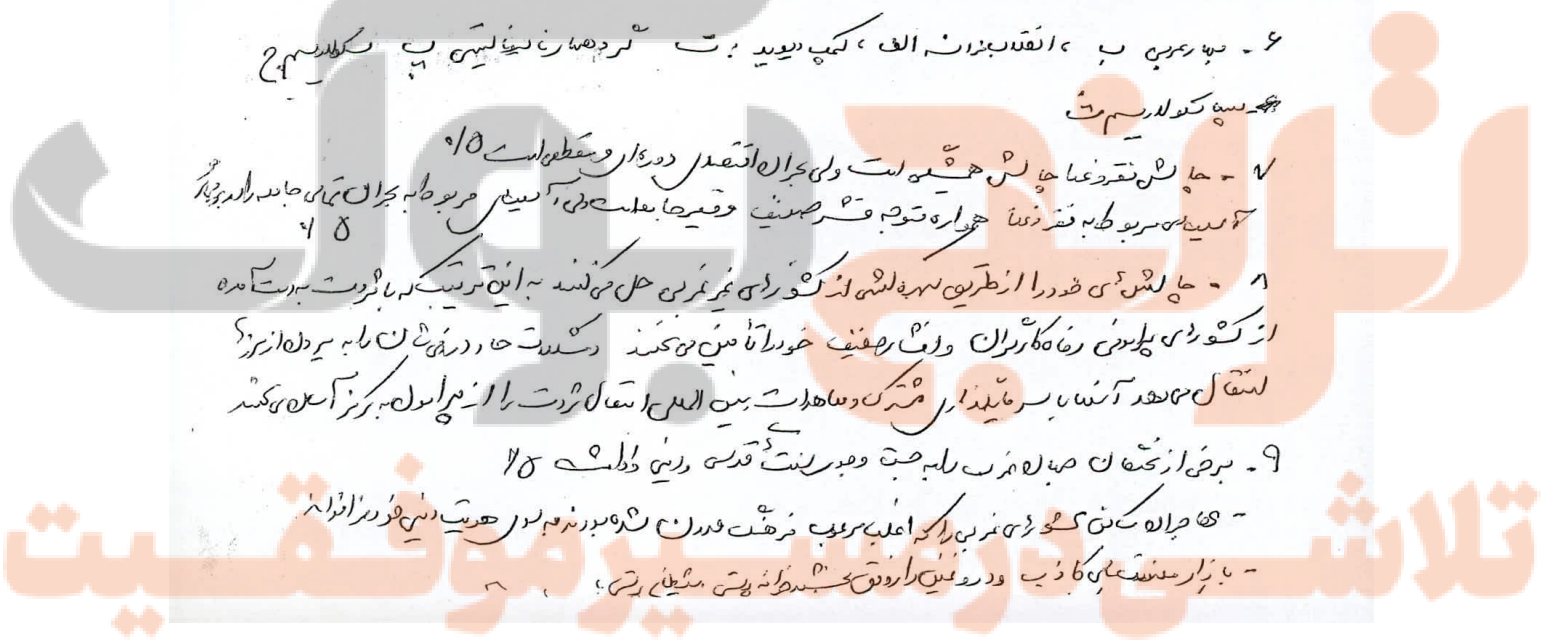 ۶ - بهار عربی ب ، انقلاب فرانسه الف ، کمپ دیوید : ت گردهمایی پ سکولاریسم ج
پسا سکولاریسم ث
۷ - چالش فقر و غنا چالش همیشگی است ولی بحران اقتصادی دوره‌ای و مقطعی است ۰/۵
آسیبهای مربوط به فقر و غنا همواره متوجه قشر ضعیف و فقیر جامعه است ولی آسیبهای مربوط به بحران تمامی جامعه را در بر می‌گیرد ۰/۵
۸ - چالش های خود را از طریق بهره کشی از کشورهای غیر غربی حل می کنند به این ترتیب که با ثروت به دست آمده
از کشورهای پیرامونی رفاه کارگران و اقشار ضعیف خود را تأمین می کنند و مشکلات حاد درونی شان را به بیرون از مرزها
انتقال می دهد آنها با سرمایه گذاری مشترک و معاهدات بین المللی انتقال ثروت را از پیرامون به مرکز آسان می کنند
۹ - برخی از نخبگان جهان غرب را به جست و جوی سنت های قدسی و دینی واداشت ۰/۵
- مهاجران ساکن کشورهای غربی را که اغلب مرعوب فرهنگ مدرن شده بودند به سوی هویت دینی خود فراخواند
- بازار معنویت های کاذب و دروغین را رونق بخشید خرافه پرستی شیطان پرستی
تورنج بوک
تلاشی در مسیر موفقیت